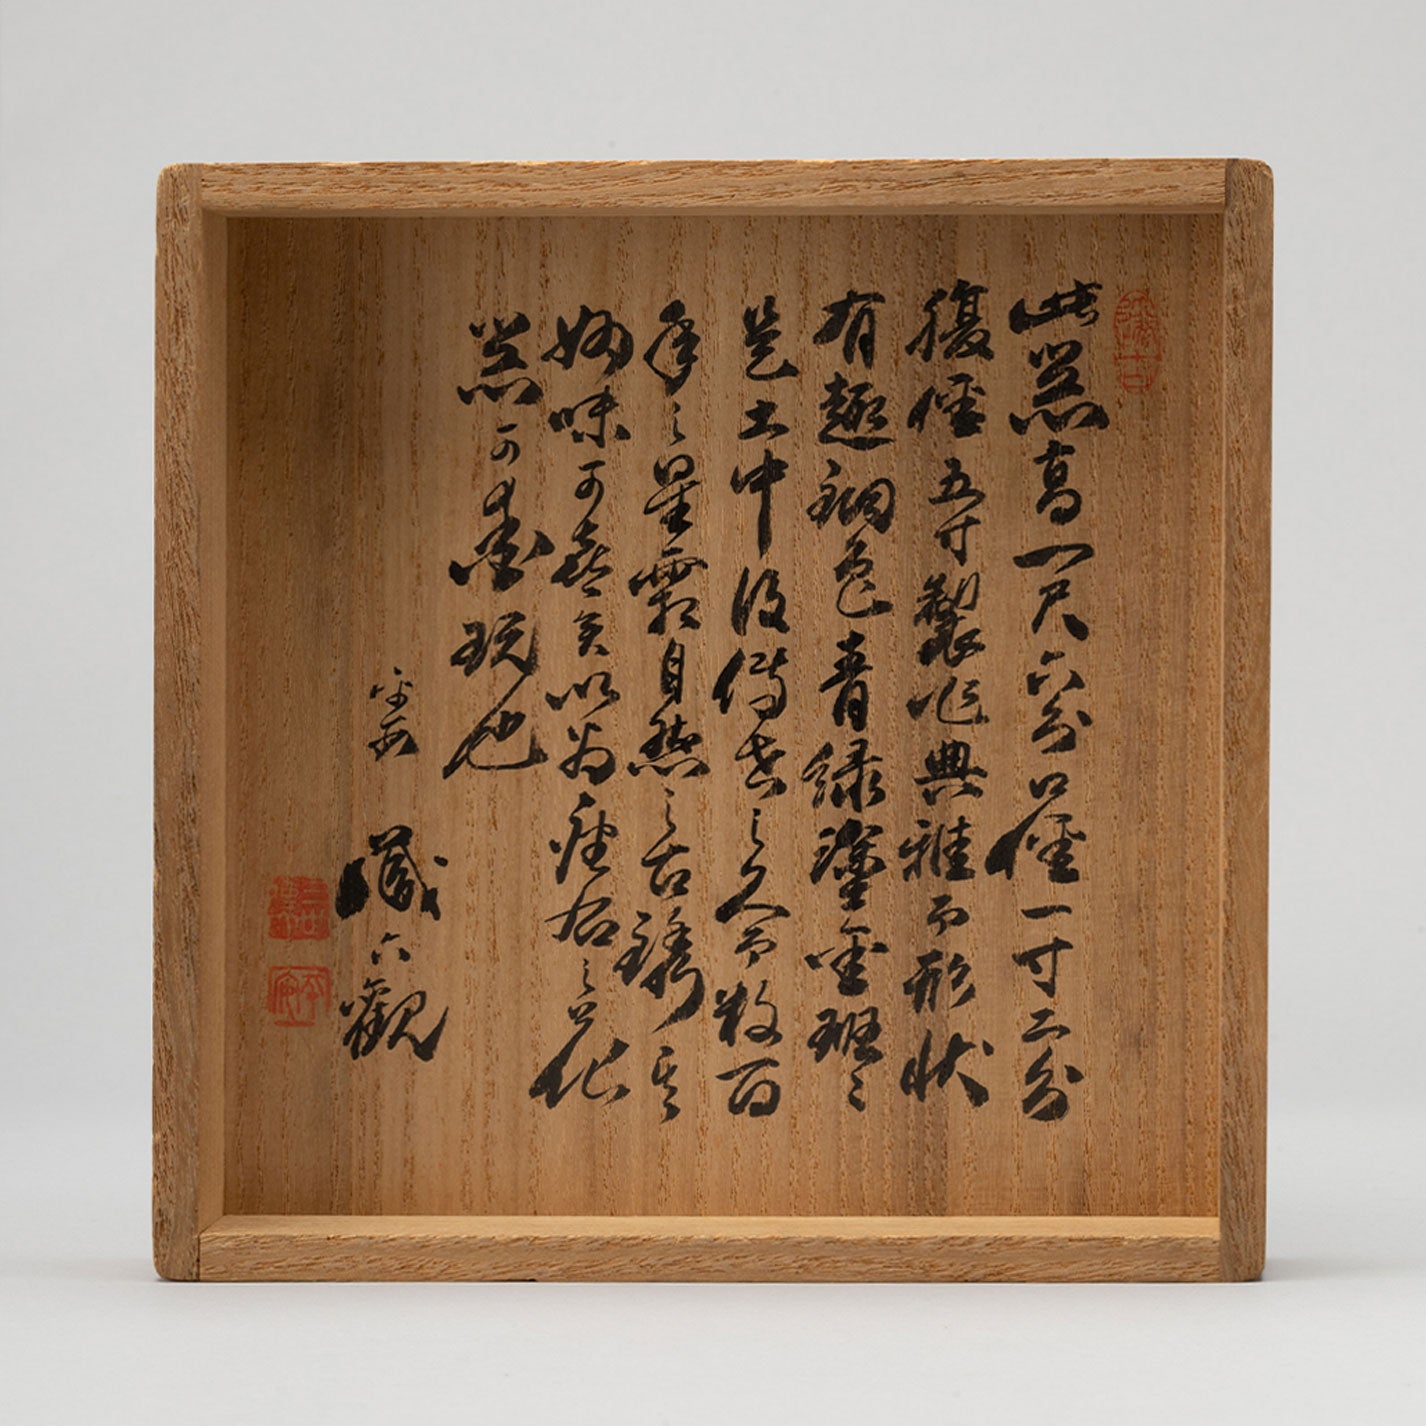 此器高一尺六分口徑一寸二分
腹徑五寸製作典雅而形状
有趣銅色青緑塗金班〻
是土中後傳世之久而數百
年之星霜自然之古銹其
妙味可喜矣以為座右之花
器可愛玩也
平安 藏六觀